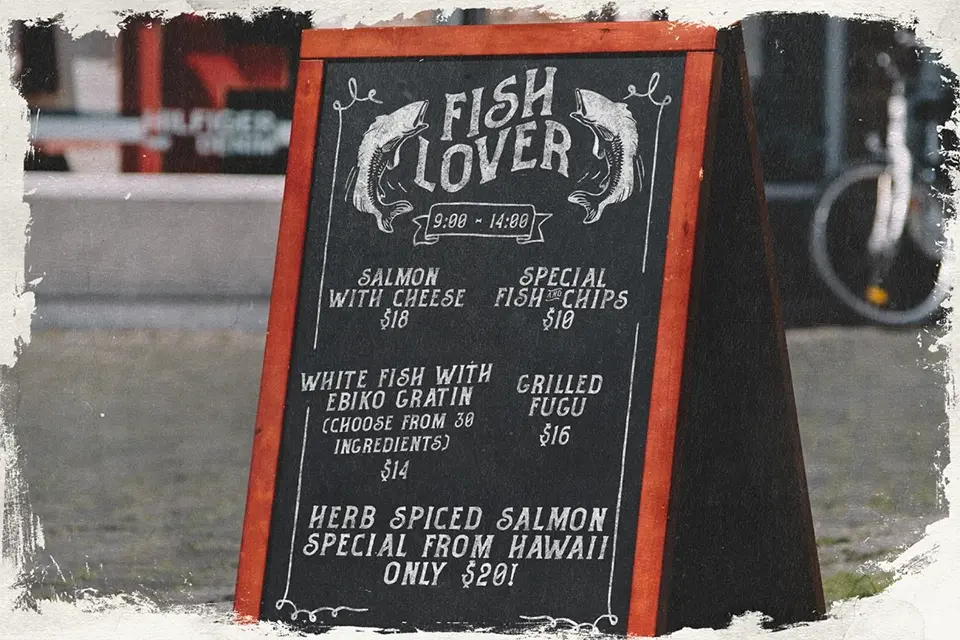 HILFIGER
DENIM
FISH
LOVER
9:00 ~ 14:00
SALMON
WITH CHEESE
$18
SPECIAL
FISH AND CHIPS
$10
WHITE FISH WITH
EBIKO GRATIN
(CHOOSE FROM 30
INGREDIENTS)
$14
GRILLED
FUGU
$16
HERB SPICED SALMON
SPECIAL FROM HAWAII
ONLY $20!